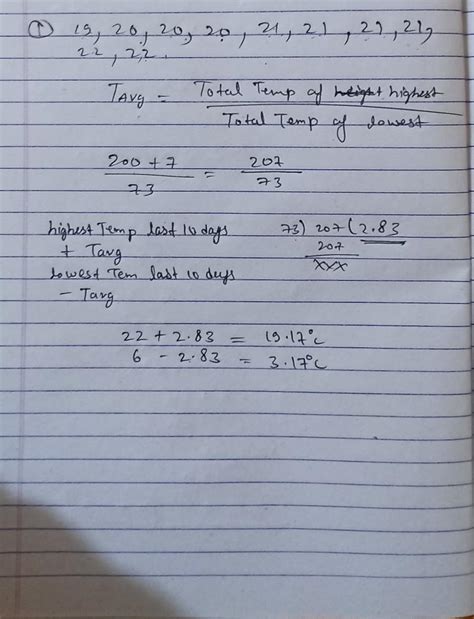 ① 19, 20, 20, 20, 21, 21, 21, 21,
22, 22.
TAvg = Total Temp of highest
Total Temp of lowest
200 + 7 = 207
73 73
highest Temp last 10 days
+ Tavg
lowest Tem last 10 days
- Tavg
73) 207 ( 2.83
207
XXX
22 + 2.83 = 19.17°c
6 - 2.83 = 3.17°c